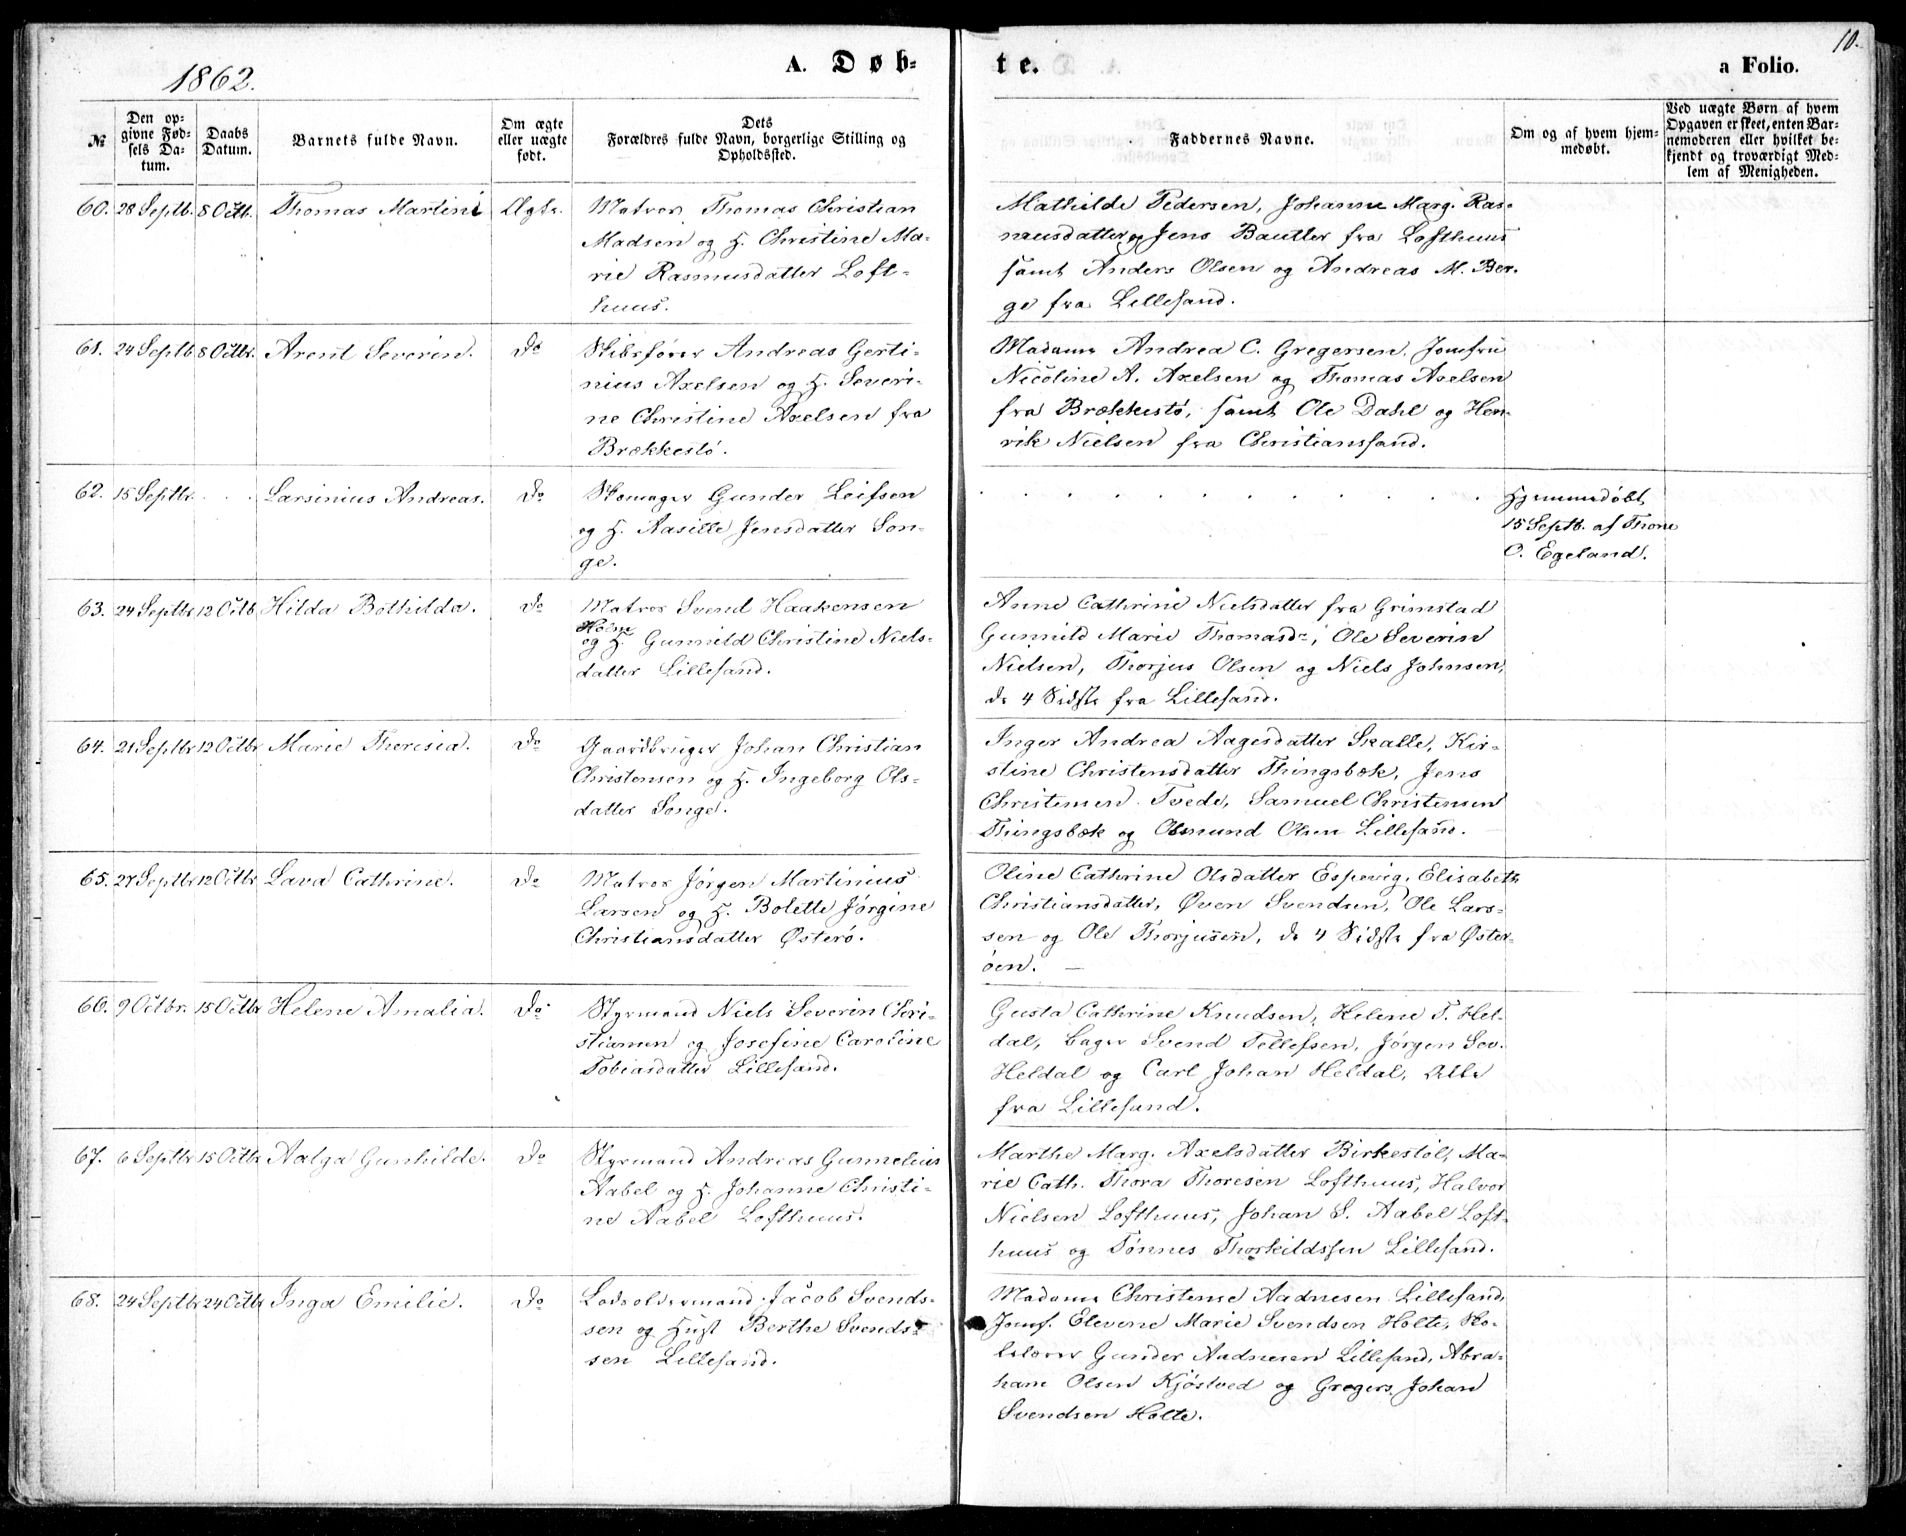 1862.
A. Døb-
te.
10.
a Folio.
№
Den op-
givne Fød-
sels Da-
tum.
Daabs
Datum.
Barnets fulde Navn.
Om ægte
eller uægte
født.
Dets
Forældres fulde Navn, borgerlige Stilling og
Opholdssted.
Faddernes Navne.
Om og af hvem hjem-
medøbt.
Ved uægte Børn af hvem
Opgaven er skeet, enten Bar-
nemoderen eller hvilket be-
kjendt og troværdigt Med-
lem af Menigheden.
60. 28 Septb. 8 Octb. Thomas Martini Ægte.
Matros Thomas Christian
Madsen og H. Christine Ma-
rie Rasmusdatter Loft-
huus.
Mathilde Pedersen, Johanne Marg. Ras-
musdatter og Jens Bautler fra Lofthuus
samt Anders Olsen og Andreas M. Ber-
ge fra Lillesand.
61. 24 Septb. 8 Octbr. Arent Severin. Do
Skibsfører Andreas Gerti-
nius Axelsen og H. Severi-
ne Christine Axelsen fra
Brækkestø.
Madame Andrea C. Gregersen, Jomfru
Nicoline A. Axelsen og Thomas Axelsen
fra Brækkestø, samt Ole Dahl og Hen-
rik Nielsen fra Christianssand.
62. 15 Septbr. . . Larsinius Andreas. Do
Skomager Gunder Leifsen
og H. Aasille Jensdatter Son-
ge.
Hjemmedøbt
15 Septb. af Thone
O. Egeland.
63. 24 Septbr 12 Octb. Hilda Bothilda. Do
Matros Svend Haakensen
Holme
og H. Gunnild Christine Niels-
datter Lillesand.
Anne Cathrine Nielsdatter fra Grimstad
Gunnild Marie Thomasdr, Ole Severin
Nielsen, Thorjus Olsen og Niels Johnsen,
de 4 Sidste fra Lillesand.
64. 21 Septbr 12 Octbr Marie Theresia. Do
Gaardbruger Johan Christian
Christensen og H. Ingeborg Ols-
datter Songe.
Inger Andrea Aagesdatter Skalle, Kir-
stine Christensdatter Thingsbæk, Jens
Christensen Tvede, Samuel Christensen
Thingsbæk og Osmund Olsen Lillesand.
65. 27 Septbr 12 Octbr Lava Cathrine. Do
Matros Jørgen Martinius
Larsen og H. Bolette Jørgine
Christiansdatter Østerø.
Oline Cathrine Olsdatter Espevig, Elisabeth
Christiansdatter, Øven Svendsen, Ole Lars-
sen og Ole Thorjussen, de 4 Sidste fra Øster-
øen.
66. 9 Octbr. 15 Octbr Helene Amalia. Do
Styrmand Niels Severin Chri-
stiansen og Josefine Caroline
Tobiasdatter Lillesand.
Gusta Cathrine Knudsen, Helene T. Hel-
dal, Bager Svend Tellefsen, Jørgen Sev.
Heldal og Carl Johan Heldal, Alle
fra Lillesand.
67. 6 Septbr 15 Octbr Aalga Gunhilde. Do
Styrmand Andreas Gunnelius
Aabel og H. Johanne Christi-
ne Aabel Lofthuus.
Marthe Marg. Axelsdatter Birkestøl, Ma-
rie Cath. Thora Thoresen Lofthuus, Halvor
Nielsen Lofthuus, Johan S. Aabel Loft-
huus og Tønnes Thorkildssen Lillesand.
68. 24 Septbr 24 Octbr Inga Emilie. Do
Lodsoldermand Jacob Svends-
sen og Hust Berthe Svends-
sen Lillesand.
Madame Christense Aadnesen Lillesand,
Jomf. Elevene Marie Svendsen Holte, Sko-
lelærer Gunder Aadnesen Lillesand, Abra-
ham Olsen Kjøstved og Gregers Johan
Svendsen Holte.